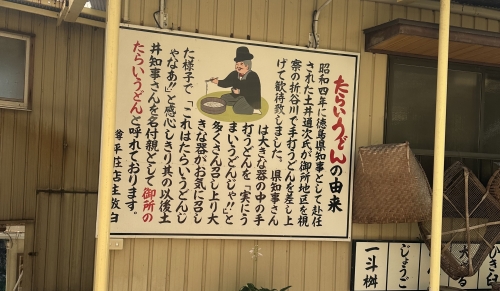 たらいうどんの由来
昭和四年に徳島県知事として赴任
された土井通次氏が御所地区を視
察の折谷川で手打うどんを差し上
げて歓待致しました。県知事さん
は大きな器の中の手
打うどんを「実にう
まいうどんじゃ!!」と
多くさん召し上り大
きな器がお気に召し
た様子で「これはたらいうどんじ
ゃなあ!!」と感心しきり其の以後土
井知事さんを名付親として御所の
たらいうどんと呼れております。
平荘店主敬白
ひき臼
じょうご
一斗桝